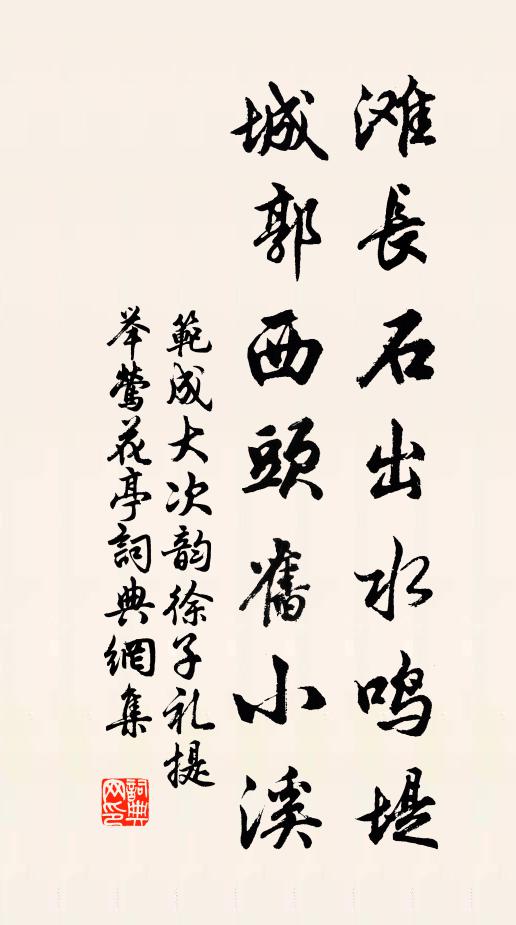 滩長石出水鸣堤
城郭西頭舊小溪
範成大次韵徐子礼提
举莺花亭詞典網集
詞典网印